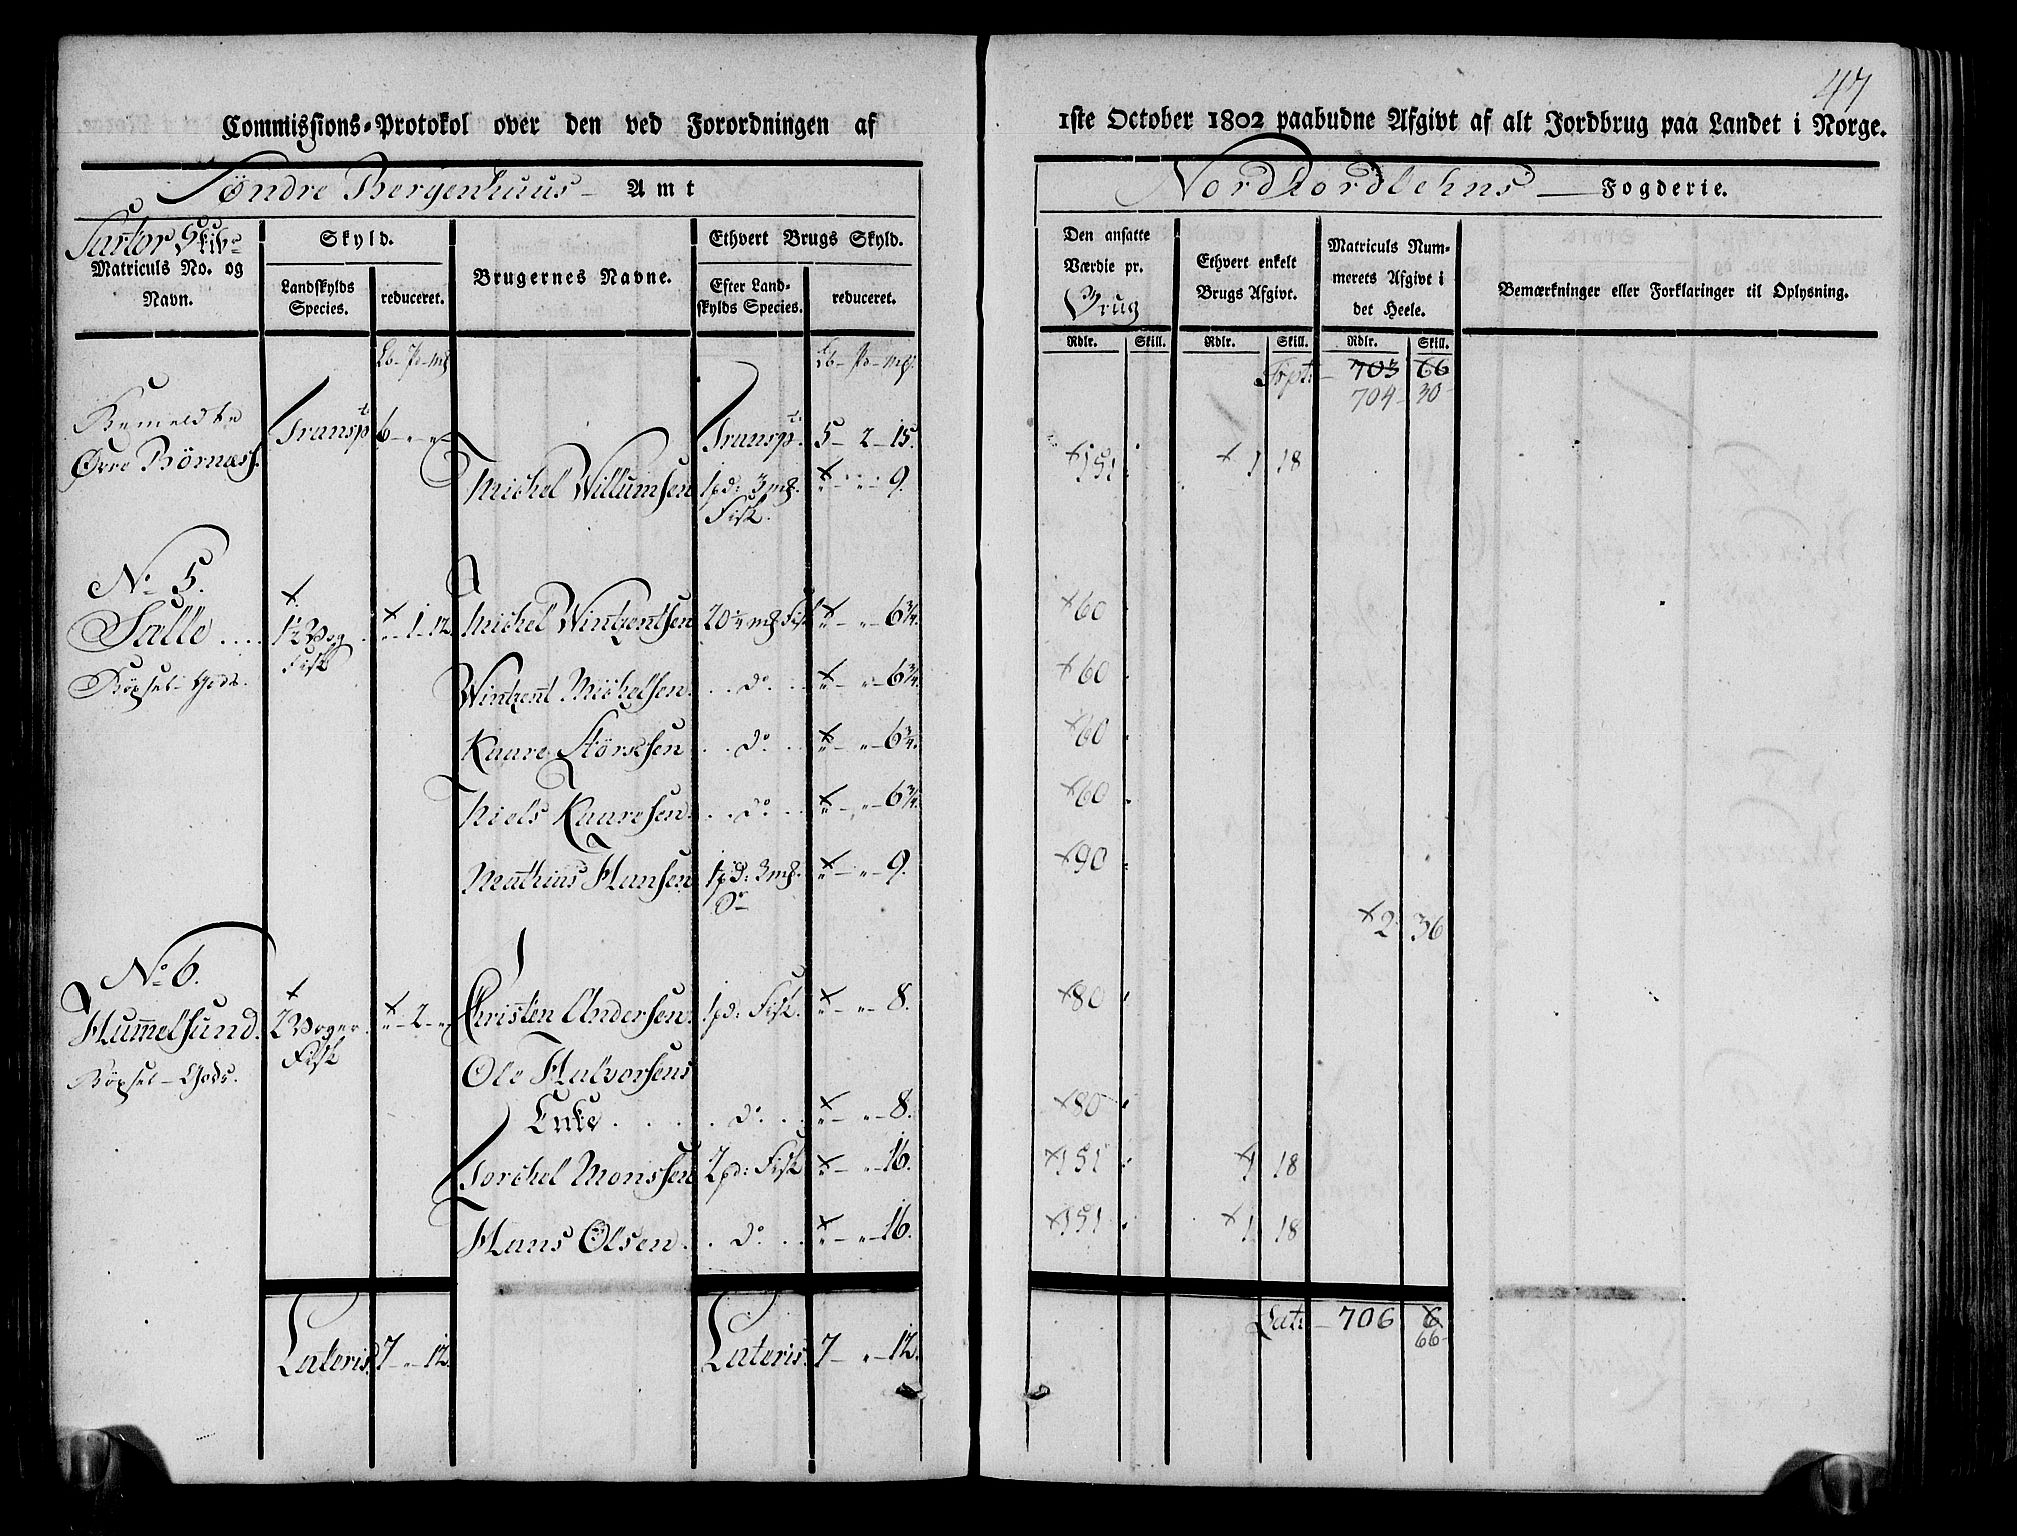 47
Commissions-Protokol over den ved Forordningen af
1ste October 1802 paabudne Afgivt af alt Jordbrug paa Landet i Norge.
Søndre Bergenhuus Amt
Nordhordlehns Fogderie.
Sartor Skibr
Matriculs No. og Navn.
Skyld.
Landskylds Species.
reduceret.
Brugernes Navne.
Ethvert Brugs Skyld.
Efter Landskylds Species.
reduceret.
Den ansatte Værdie pr. Brug
Ethvert enkelt Brugs Afgivt.
Matriculs Nummerets Afgivt i det Heele.
Bemærkninger eller Forklaringer til Oplysning.
Rdlr. Skill. Rdlr. Skill. Rdlr. Skill.
Lb - Pd - mk Lb - Pd - mk.
Trpt. 703 66
704 30
Bemeldte
Øvre Børnæs Transpt 6 - „ - „ Transpt. 5 - 2 - 15.
Michel Willumsen 1 pd: 3 mk. Fisk. x „ - „ - 9. x 151 x 1 18
No 5.
Sille .... x 1½ Vog Fisk x „ - 1 - 12 Michel Wintzentsen 20¼ mk Fisk x „ - „ - 6¾. x 60
Bøxsel-Gods. Wintzent Michelsen .. do. .. x „ - „ - 6¾. x 60
Kaare Størcksen .. do. .. x „ - „ - 6¾. x 60
Niels Kaaresen .. do .. x „ - „ - 6¾. x 60
Mathias Hansen 1 pd: 3 mk. Do x „ - „ - 9. x 90
x 2 36
No 6.
Hummelsund. x 2 Voger Fisk x „ - 2 - „ Christen Andersen 1 pd: Fisk. x „ - „ - 8. x 80
Bøxsel-Gods. Ole Halvorsens
Enke .... do. .. x „ - „ - 8. x 80
Torchel Monssen 2 pd: Fisk x „ - „ - 16. x 151 x 1 18
Hans Olsen .. do .. x „ - „ - 16. x 151 x 1 18
Lateris 7 - „ - 12. Lateris 7 - „ - 12. Late - 706 6
66